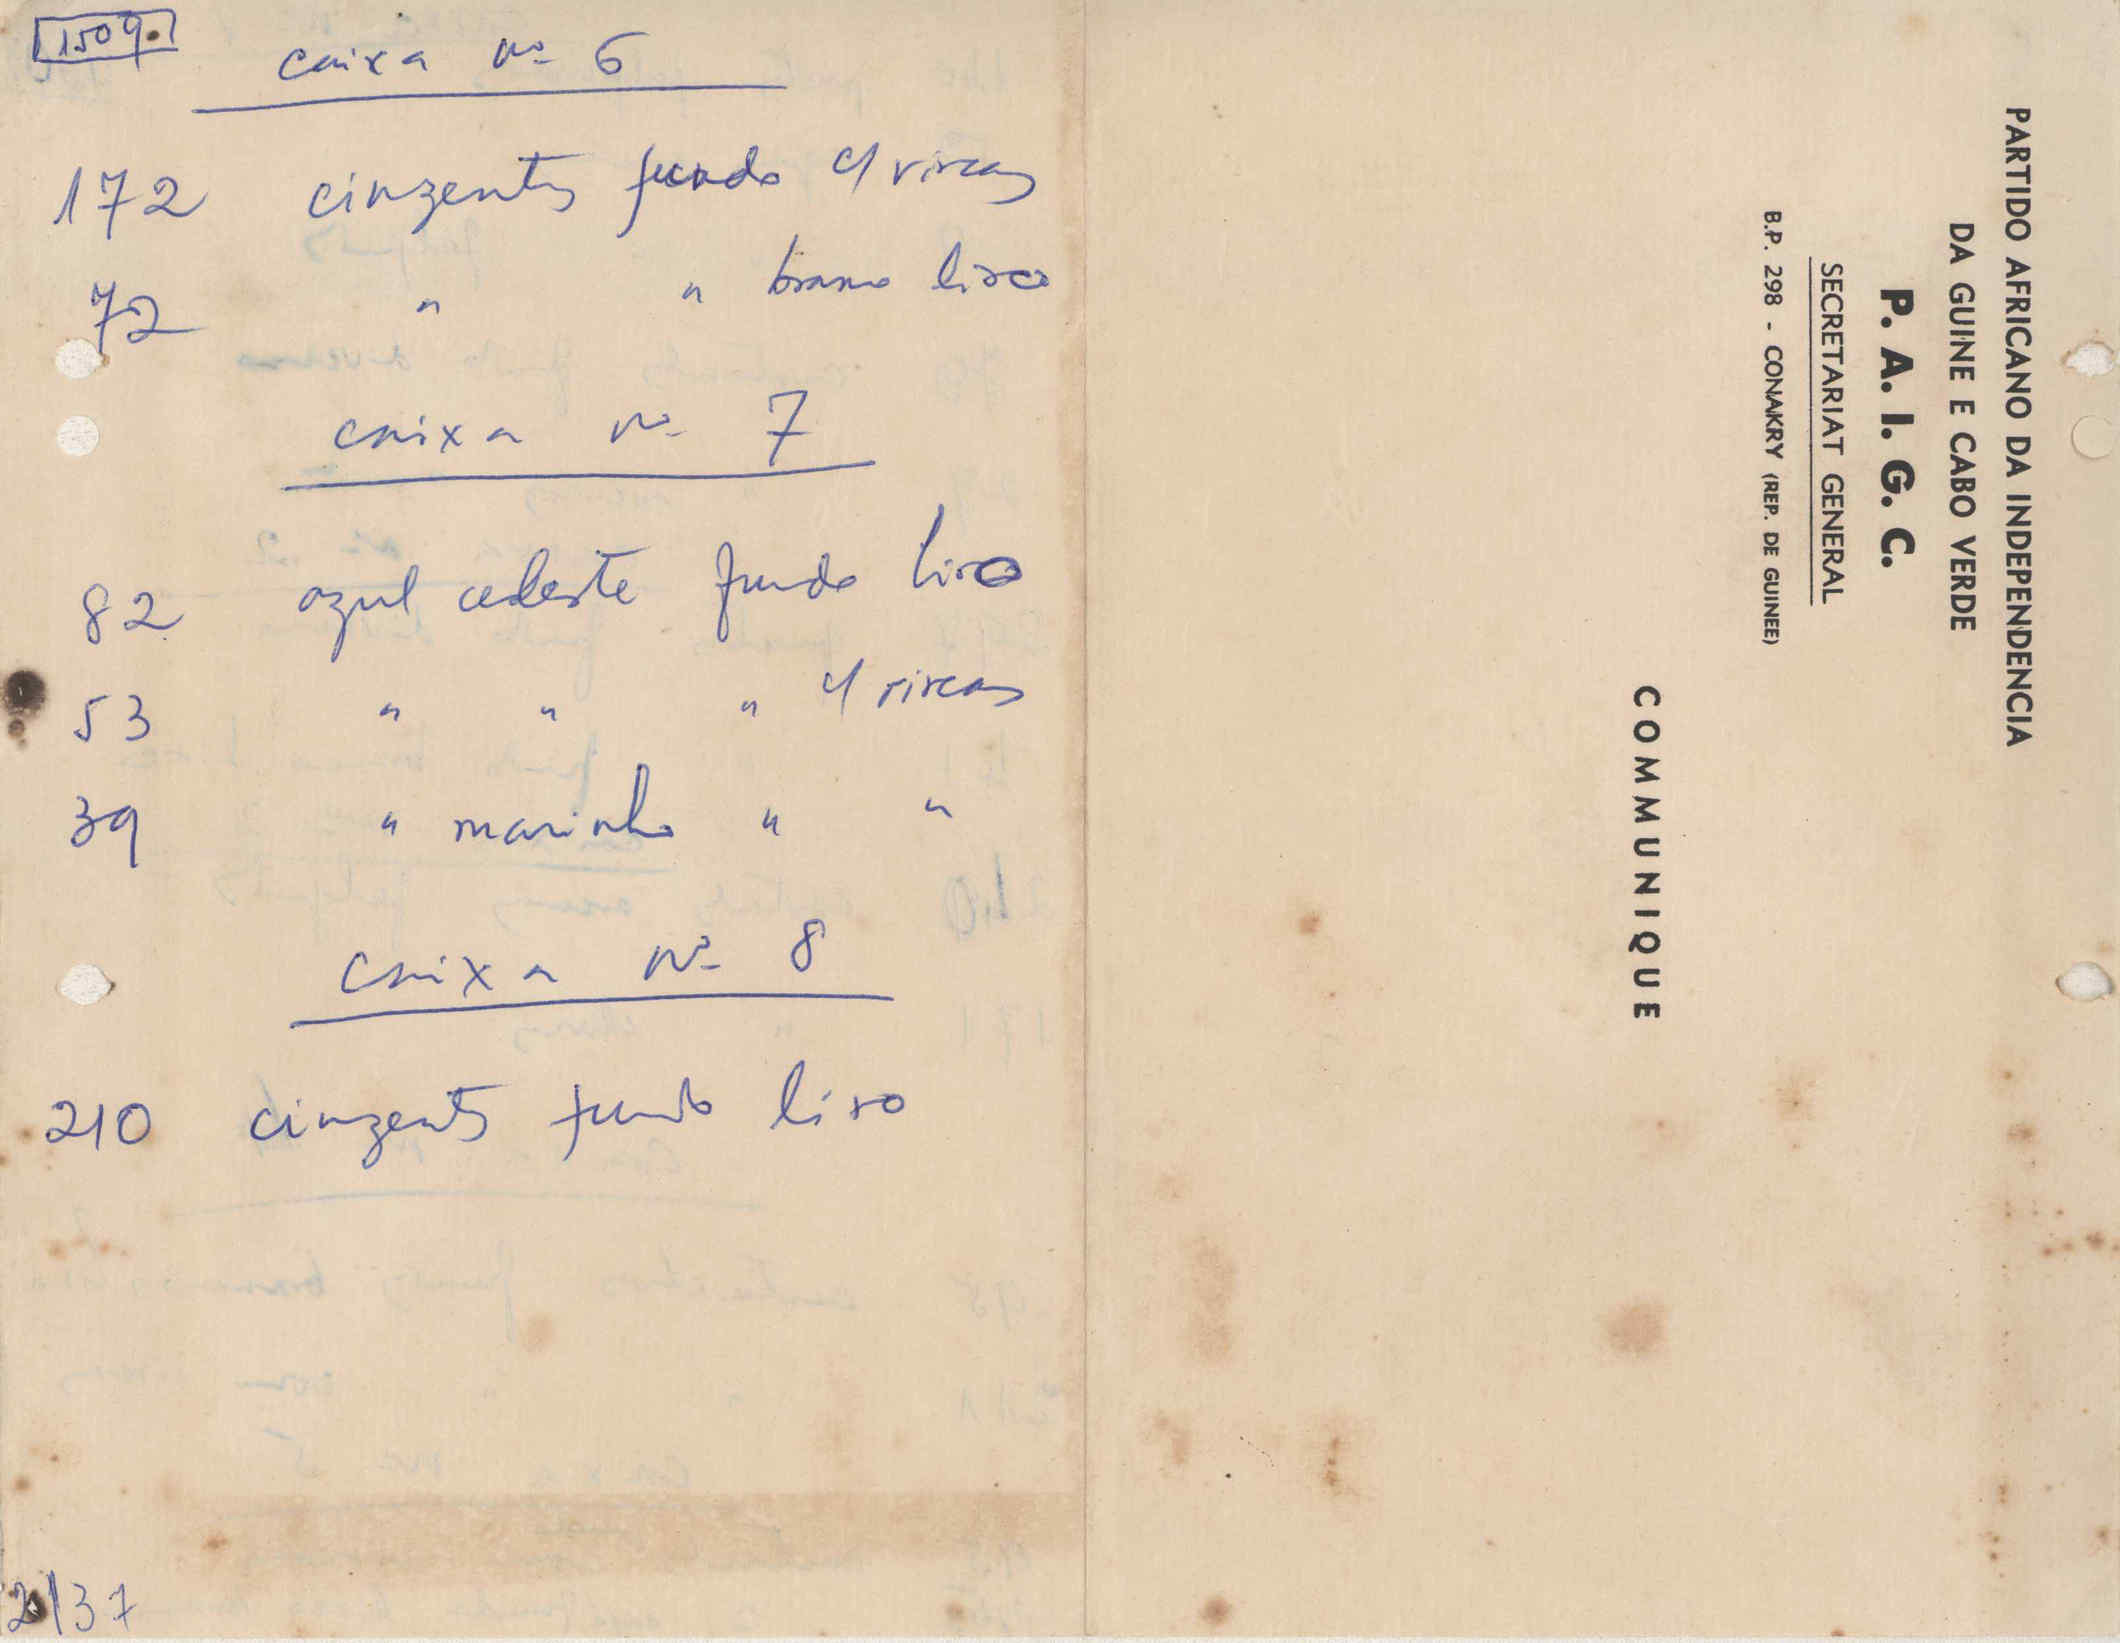 1509
caixa nº 6
172 cinzentos fundo c/ riscas
72 " " branco liso
caixa nº 7
82 azul celeste fundo liso
53 " " " c/ riscas
39 " marinho " "
caixa nº 8
210 cinzentos fundo liso
2/37
PARTIDO AFRICANO DA INDEPENDENCIA
DA GUINE E CABO VERDE
P. A. I. G. C.
SECRETARIAT GENERAL
B.P. 298 - CONAKRY (REP. DE GUINEE)
COMMUNIQUE